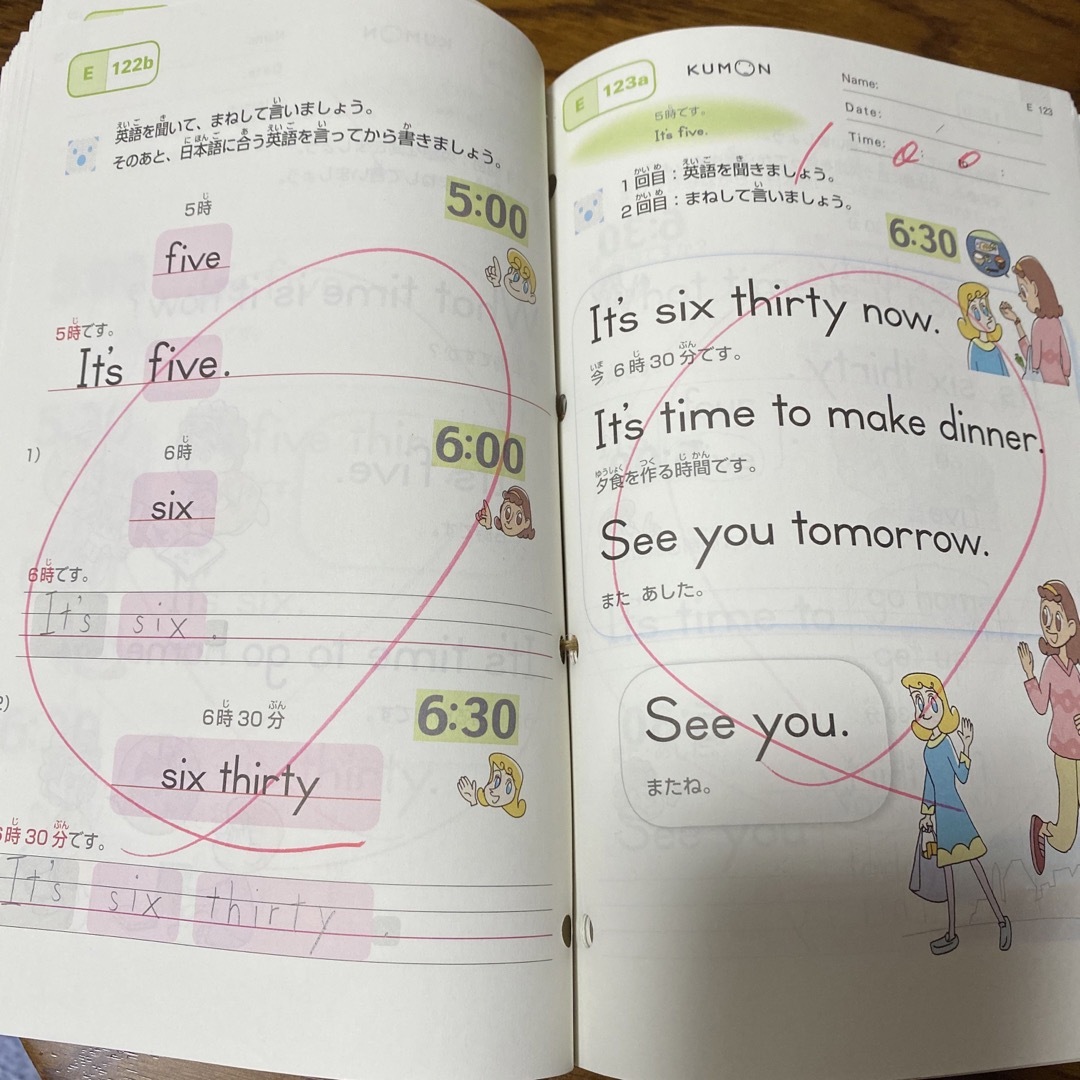 E 122b
英語を聞いて、まねして言いましょう。
そのあと、日本語に合う英語を言ってから書きましょう。
5:00
5時
five
5時です。
It's five.
6:00
1)
6時
six
6時です。
It's six.
6:30
2)
6時30分
six thirty
6時30分です。
It's six thirty.
E 123a
KUMON
Name:
E 123
Date: /
Time: : :
5時です。
It's five.
1回目：英語を聞きましょう。
2回目：まねして言いましょう。
6:30
It's six thirty now.
今 6時30分です。
It's time to make dinner.
夕食を作る時間です。
See you tomorrow.
また あした。
See you.
またね。